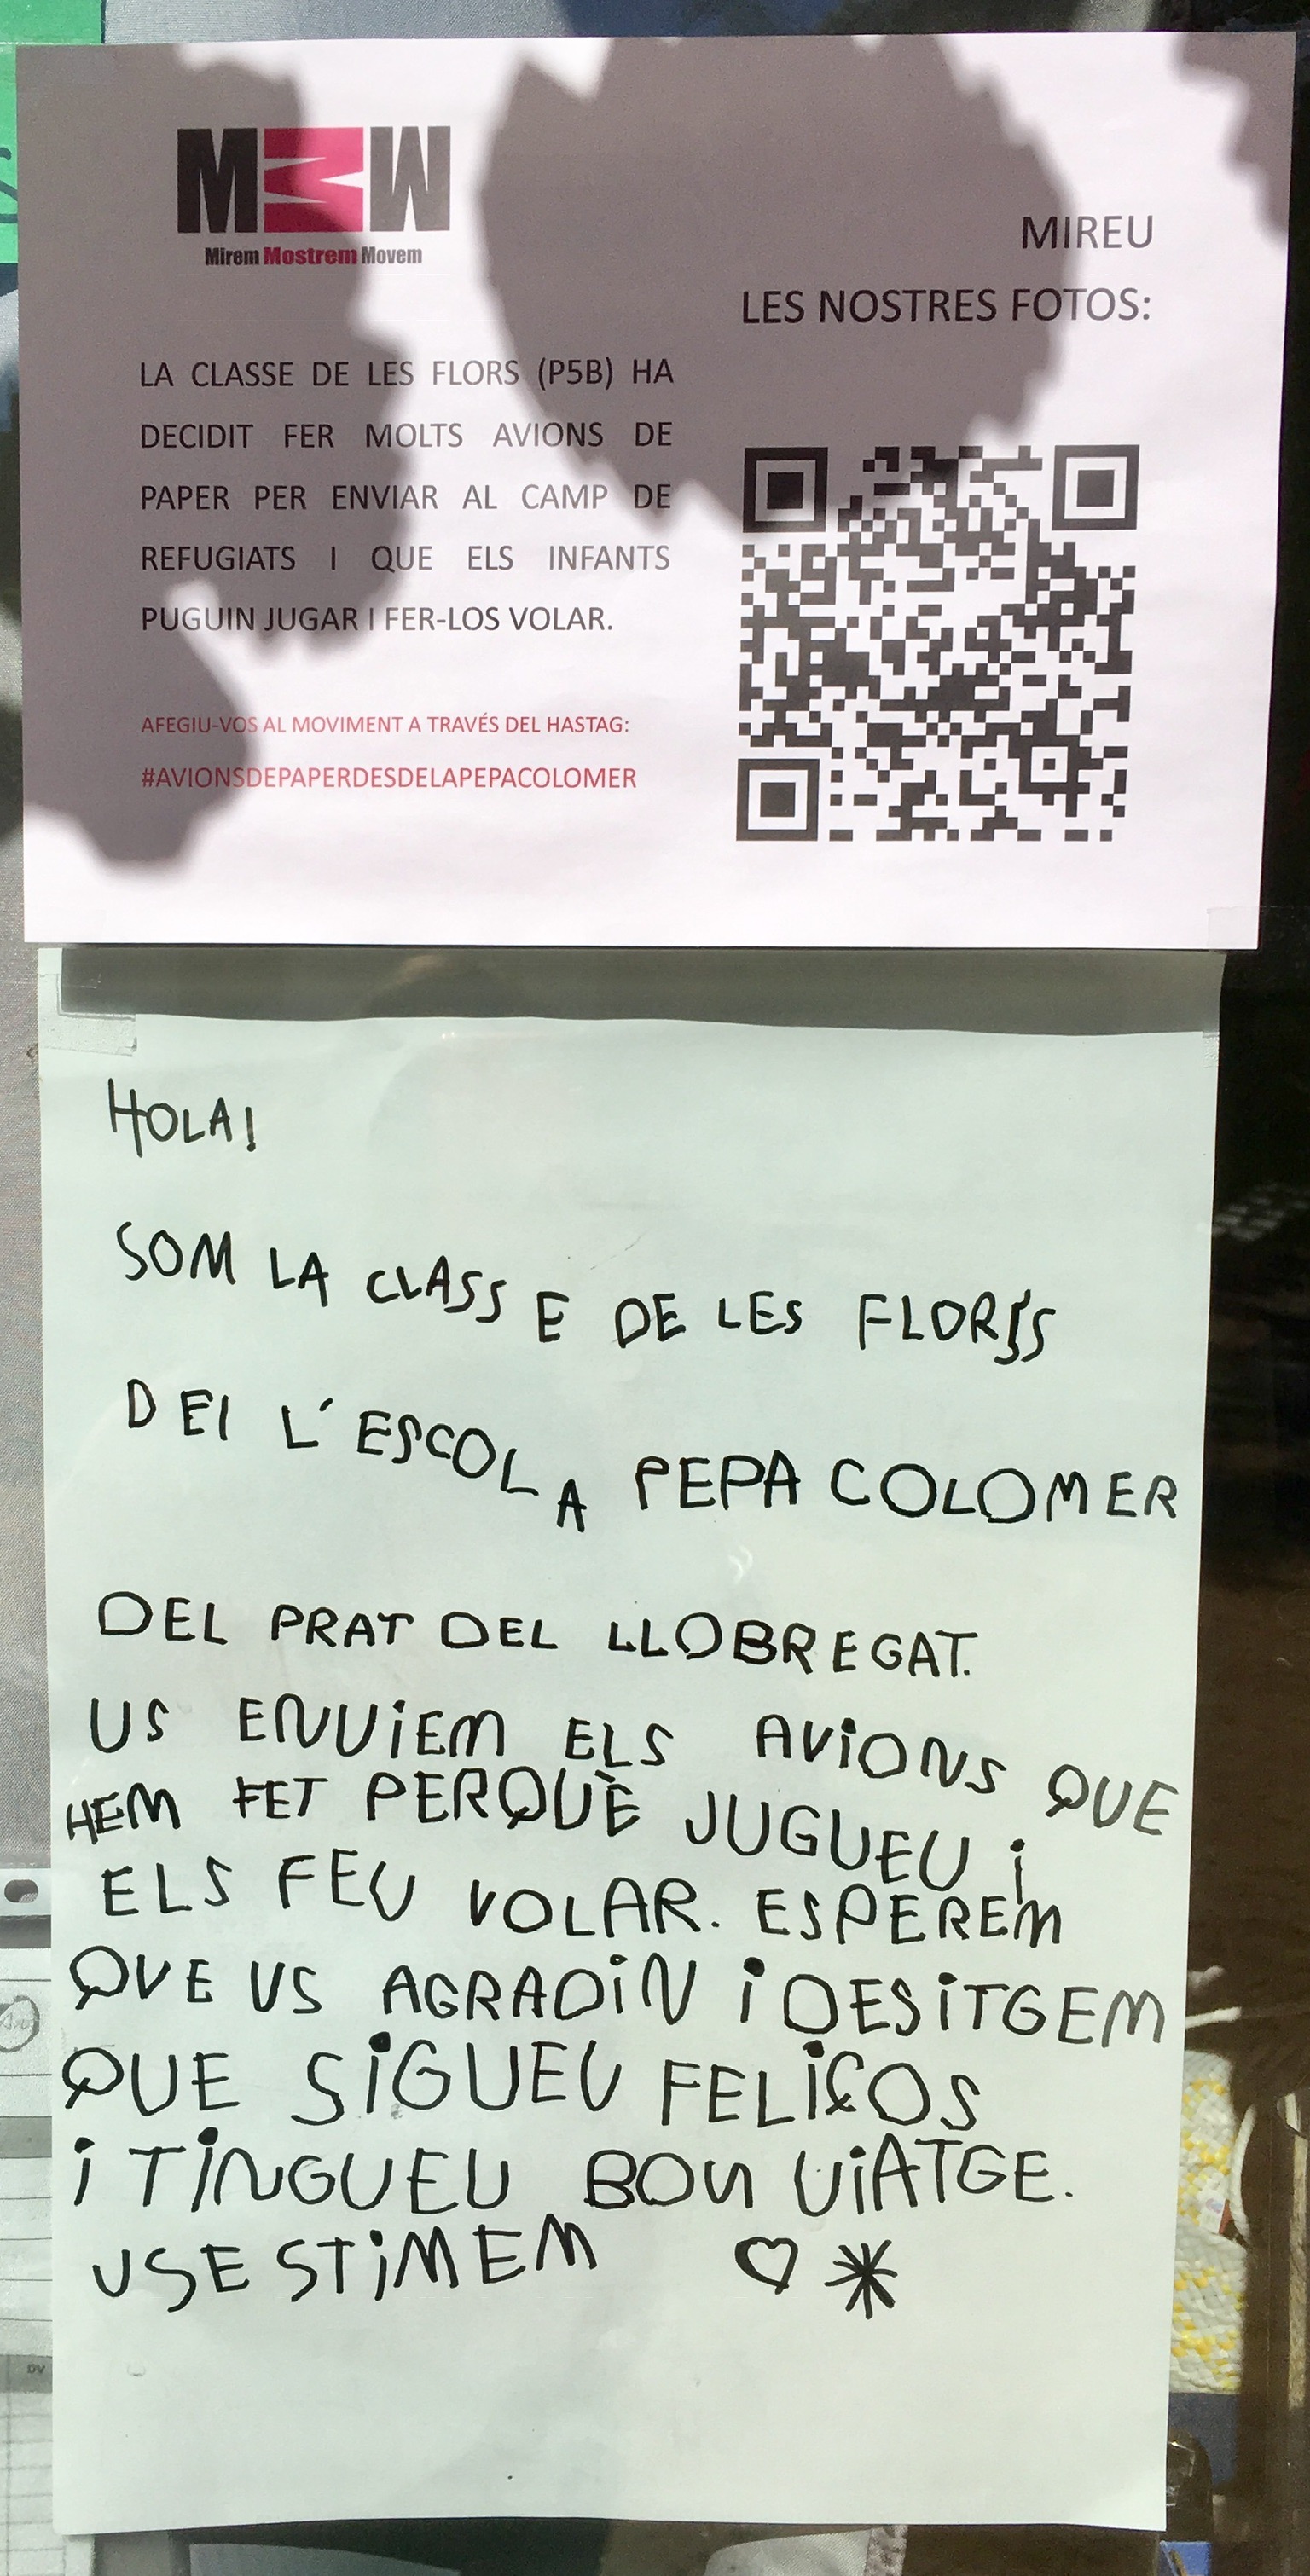 MMM
Mirem Mostrem Movem
LA CLASSE DE LES FLORS (P5B) HA
DECIDIT FER MOLTS AVIONS DE
PAPER PER ENVIAR AL CAMP DE
REFUGIATS I QUE ELS INFANTS
PUGUIN JUGAR I FER-LOS VOLAR.
AFEGIU-VOS AL MOVIMENT A TRAVÉS DEL HASTAG:
#AVIONSDEPAPERDESDELAPEPACOLOMER
MIREU
LES NOSTRES FOTOS:
HOLA!
SOM LA CLASSE DE LES FLORSS
DEI L'ESCOLA PEPA COLOMER
DEL PRAT DEL LLOBREGAT.
US ENVIEM ELS AVIONS QUE
HEM FET PERQUÈ JUGUEU i
ELS FEU VOLAR. ESPEREM
QUE US AGRADIN i DESITGEM
QUE SIGUEU FELIÇOS
i TINGUEU BON VIATGE.
US ESTIMEM ♡ *
DV